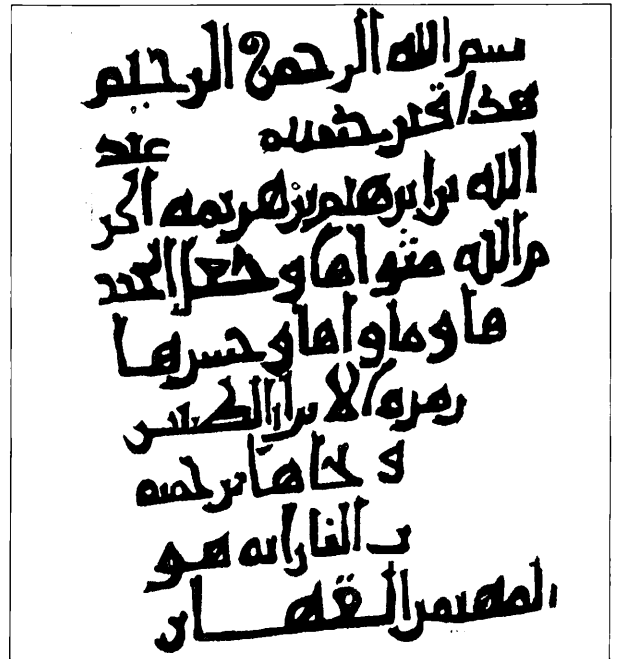 بسم الله الرحمن الرحيم
هذا قبر عبد
الله بن ابرهيم بن اكر
م الله مثواها وجعل
ها وماواها وحشرها
زمرة الابرار الطيبين
و نجاها برحمته
النار انه هو
المهيمن القهار